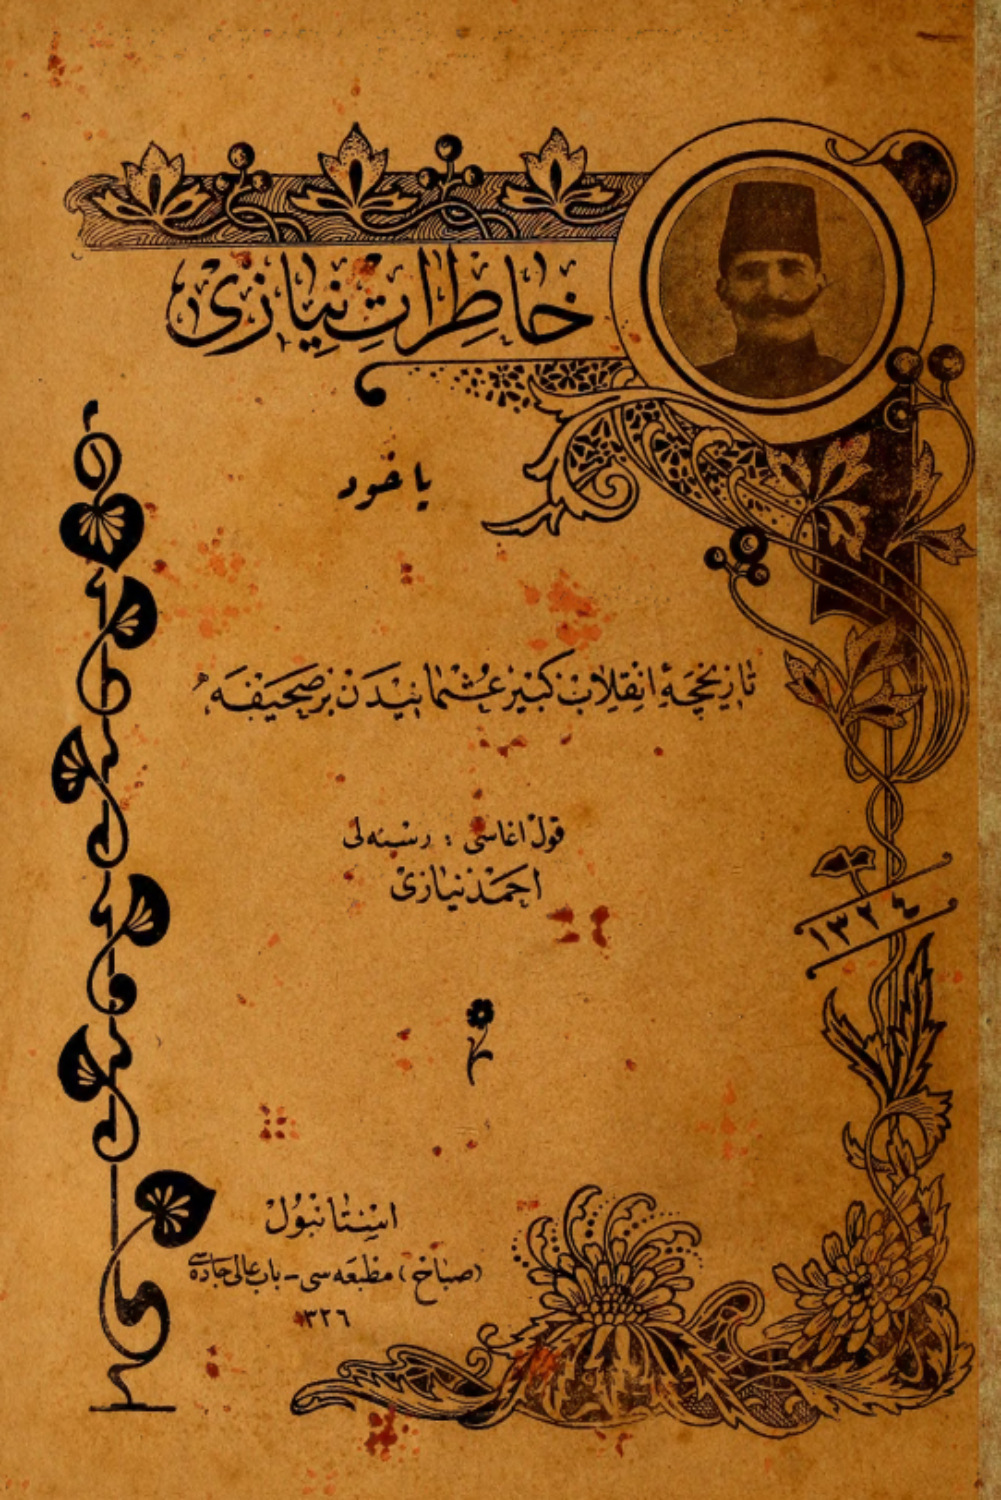 خاطرات نیازی
یاخود
تاریخچۀ انقلاب کبیر عثمانیدن بر صحیفه
قول اغاسی : رسنه لی
احمد نیازی
١٣٢٤
استانبول
(صباح) مطبعه سی – باب عالی جاده سی
١٣٢٦